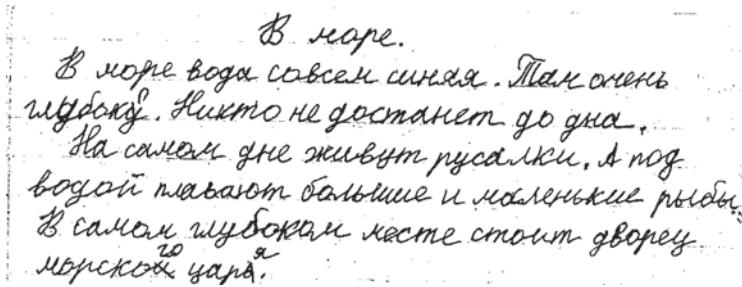 В море.
В море вода совсем синяя. Там очень
глубоко. Никто не достанет до дна.
На самом дне живут русалки. А под
водой плавают большие и маленькие рыбы.
В самом глубоком месте стоит дворец
морского царя.